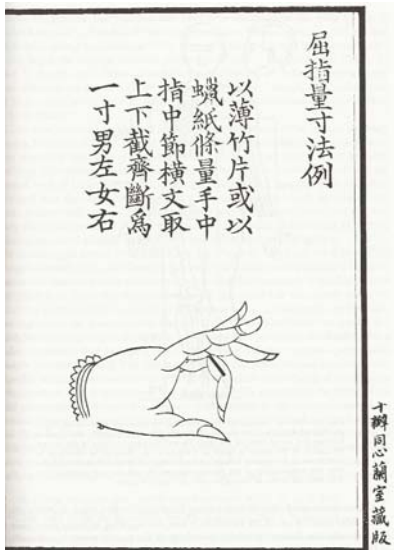 屈指量寸法例
以薄竹片或以
蠟紙條量手中
指中節橫文取
上下截齊斷爲
一寸男左女右
十瓣同心蘭室藏版